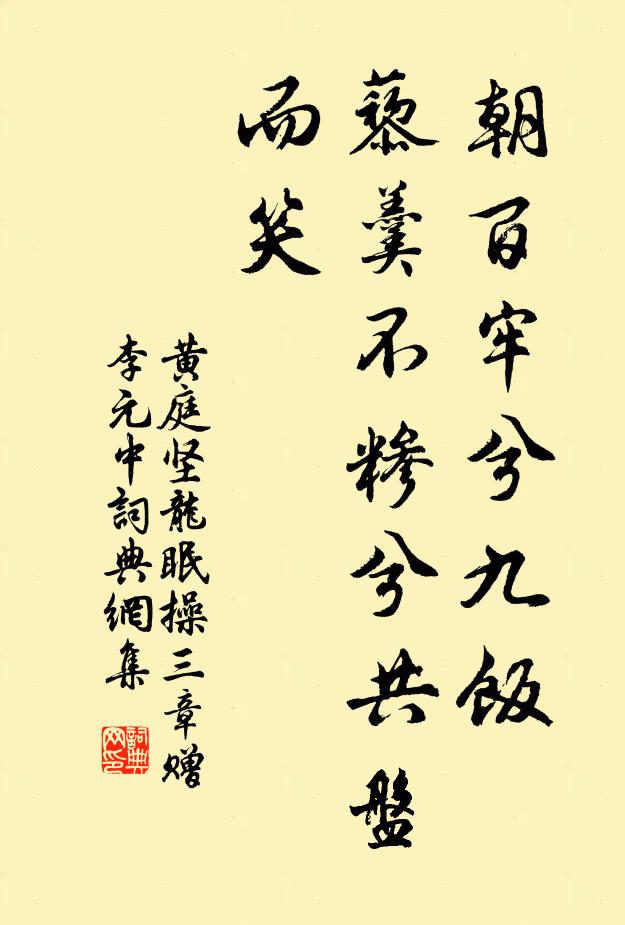 朝百牢兮九飯
藜羹不糝兮共盤
而笑
黄庭坚龍眠操三章赠
李元中詞典網集
詞典網印